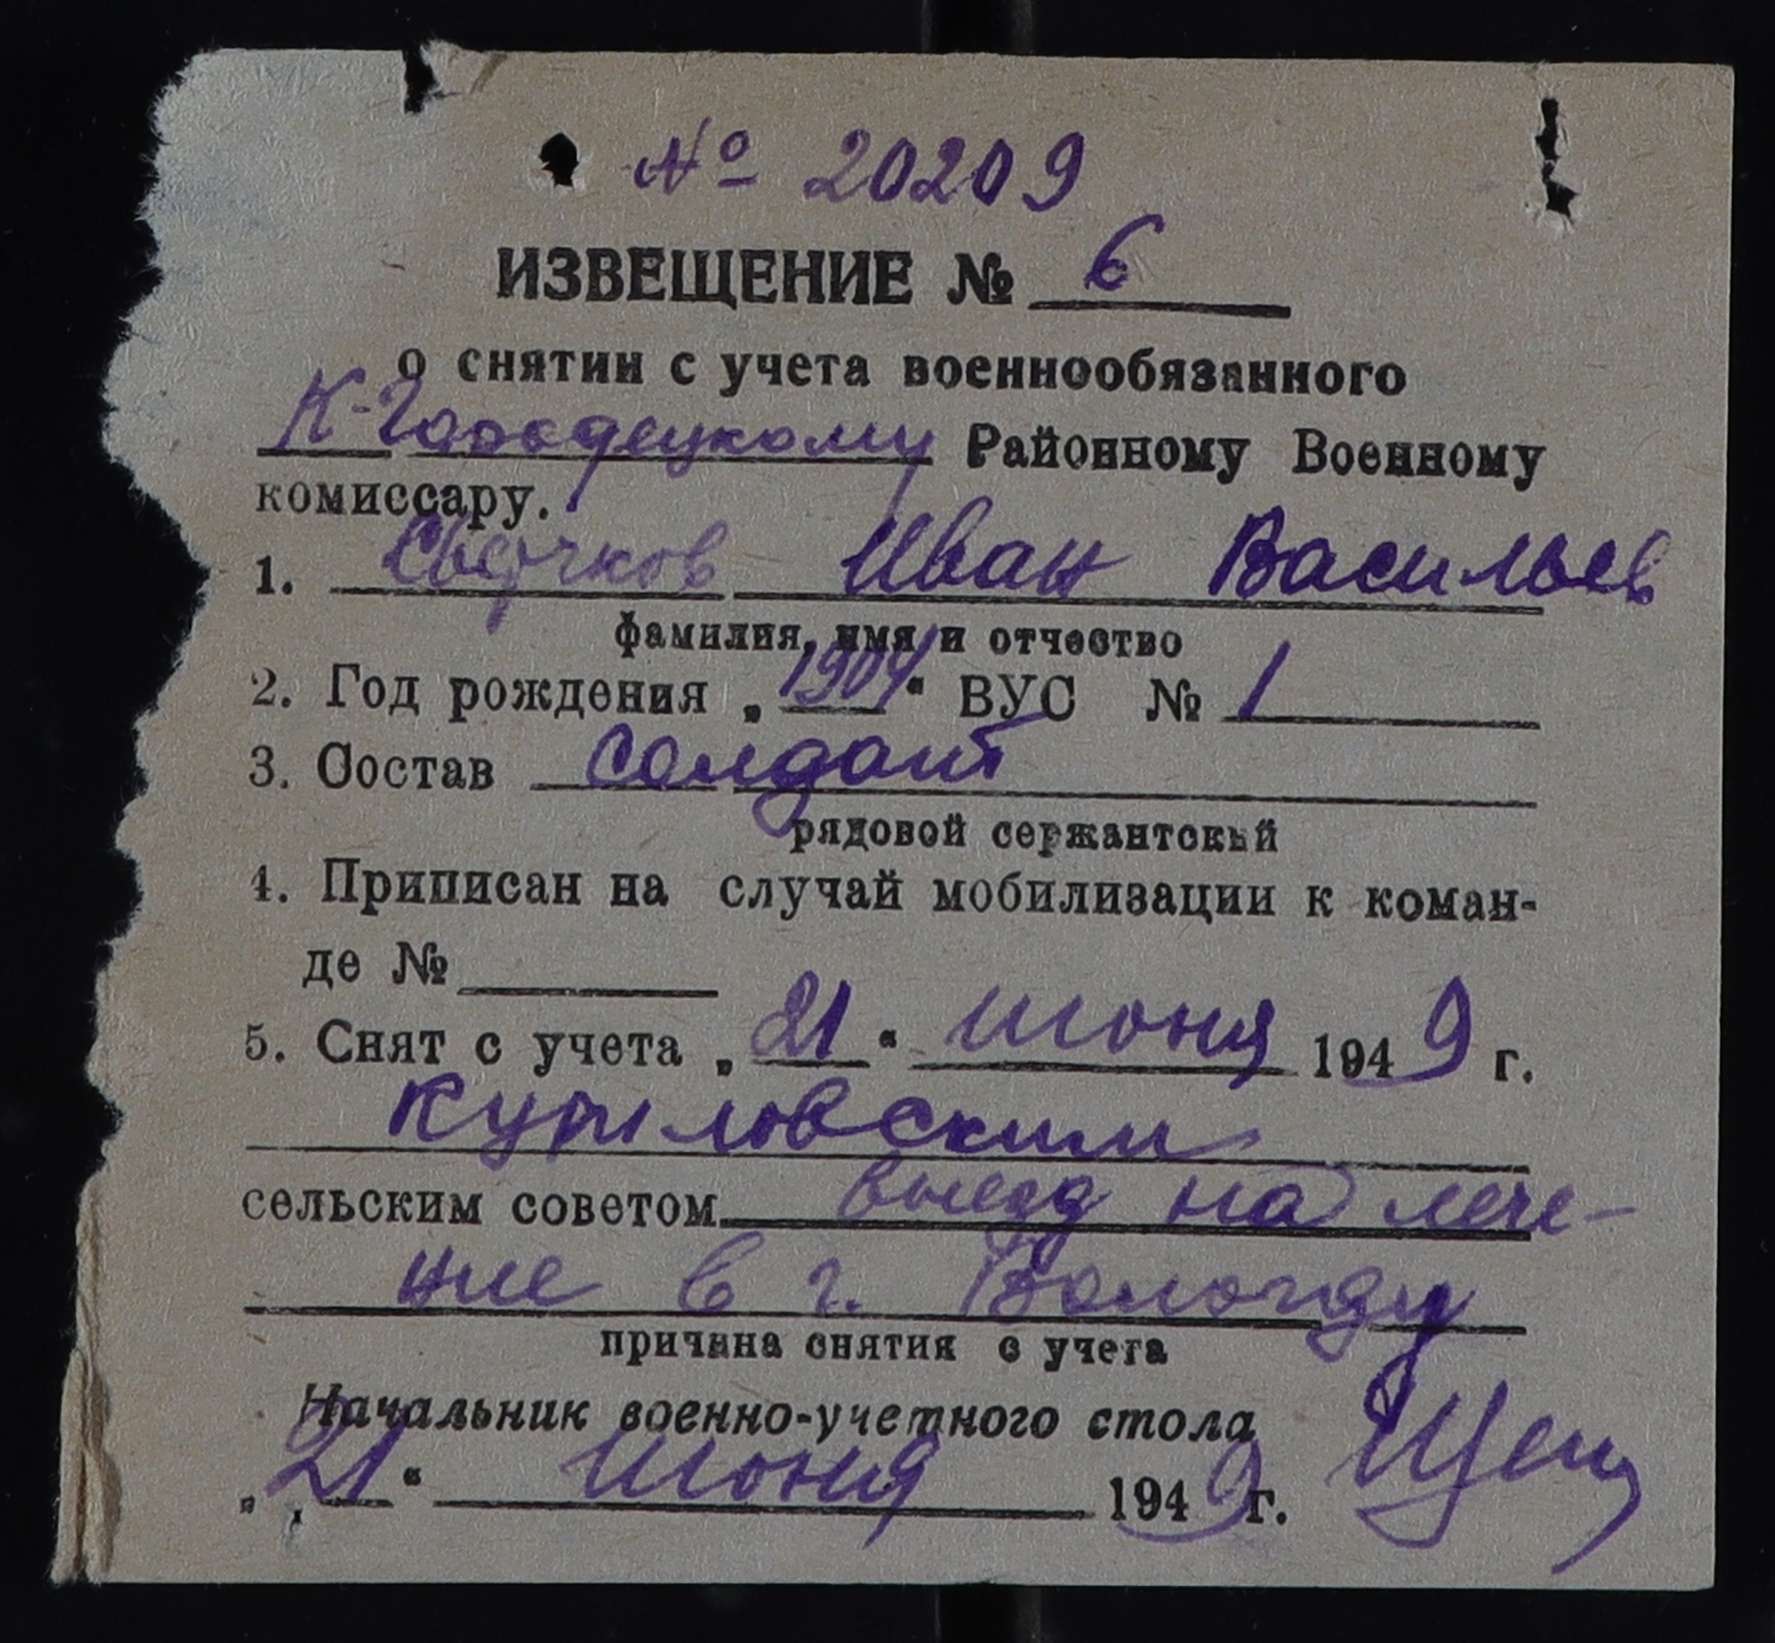 № 20209
ИЗВЕЩЕНИЕ № 6
о снятии с учета военнообязанного
К-Городецкому Районному Военному
комиссару.
1. Иван Васильев
фамилия, имя и отчество
2. Год рождения „1904“ ВУС № 1
3. Состав солдат
рядовой сержантский
4. Приписан на случай мобилизации к коман-
де №
5. Снят с учета „21“ июня 1949 г.
Куриловским
сельским советом выезд на лече-
ние в г. Вологду
причина снятия с учета
Начальник военно-учетного стола
„21“ июня 1949 г.